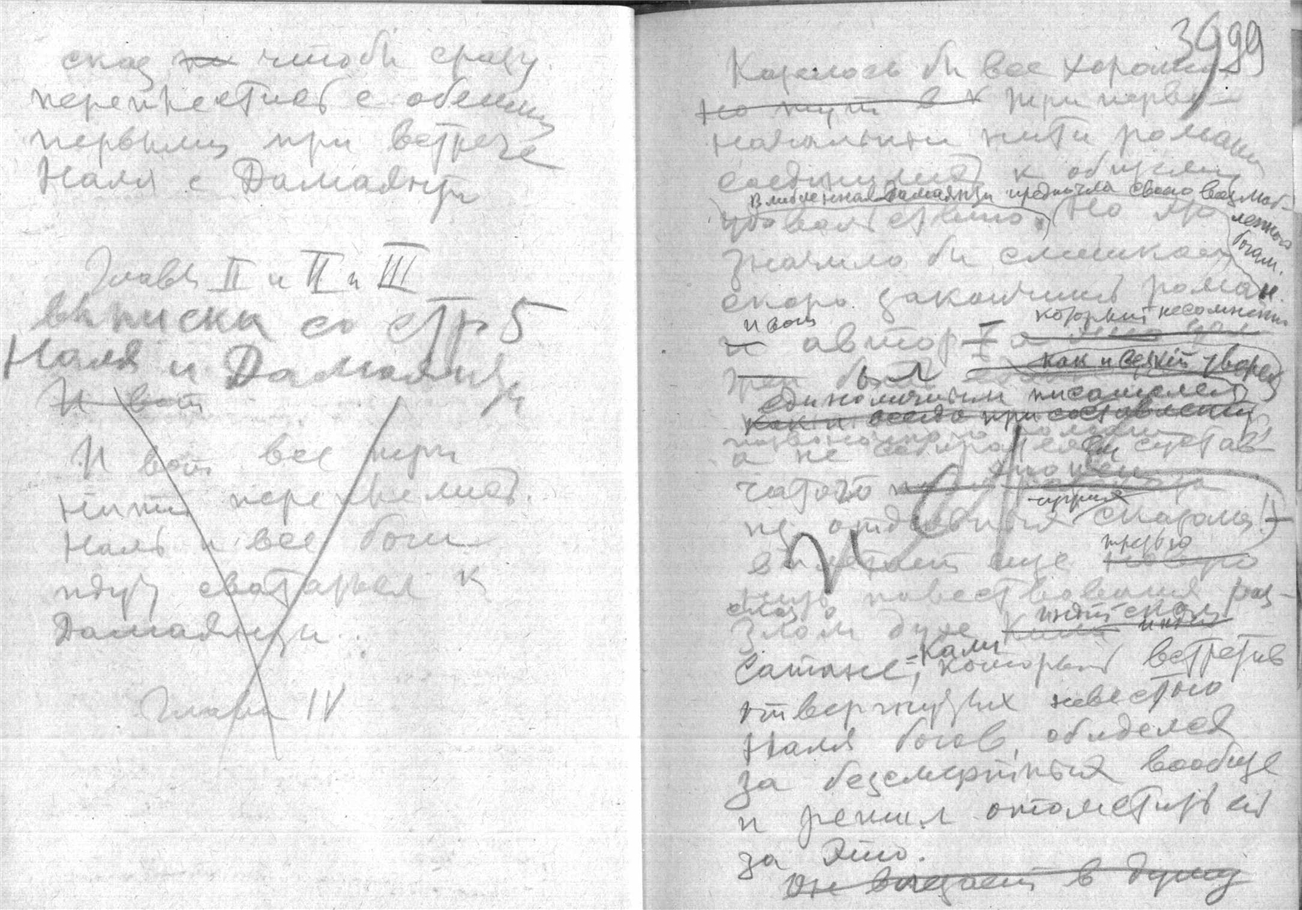 сказ, чтоби сразу
переплестись с обеими
первыми при встрече
Наля с Дамаянти
Главы II и II и III
выписки со стр 5
Наля и Дамаянти
И вот
И вот все три
нити переплелись.
Наль и все боги
идут свататься к
Дамаянти.
Глава IV
99
Казалось бы все хорошо.
но тут в три перво-
начальныи нити романа
соединились к общему
Влюбленная Дамаянти предпочла своего возлюб-
ленного
богам.
удовольствию. Но это
значило бы слишком
скоро закончить роман.
И вот
и автор
который несомненно
как и всякий творец
был
единоличным писателем
как и всегда при составлении
а не собирателем
чатого
из отдельных
вплетает еще третью
нить повествования
сказ о
Злом духе
Сатане, = Кали который встретив
отвергнутых невестою
Наля богов, обиделся
за безсмертных вообще
и решил отомстить ей
за это.
Он входит в душу